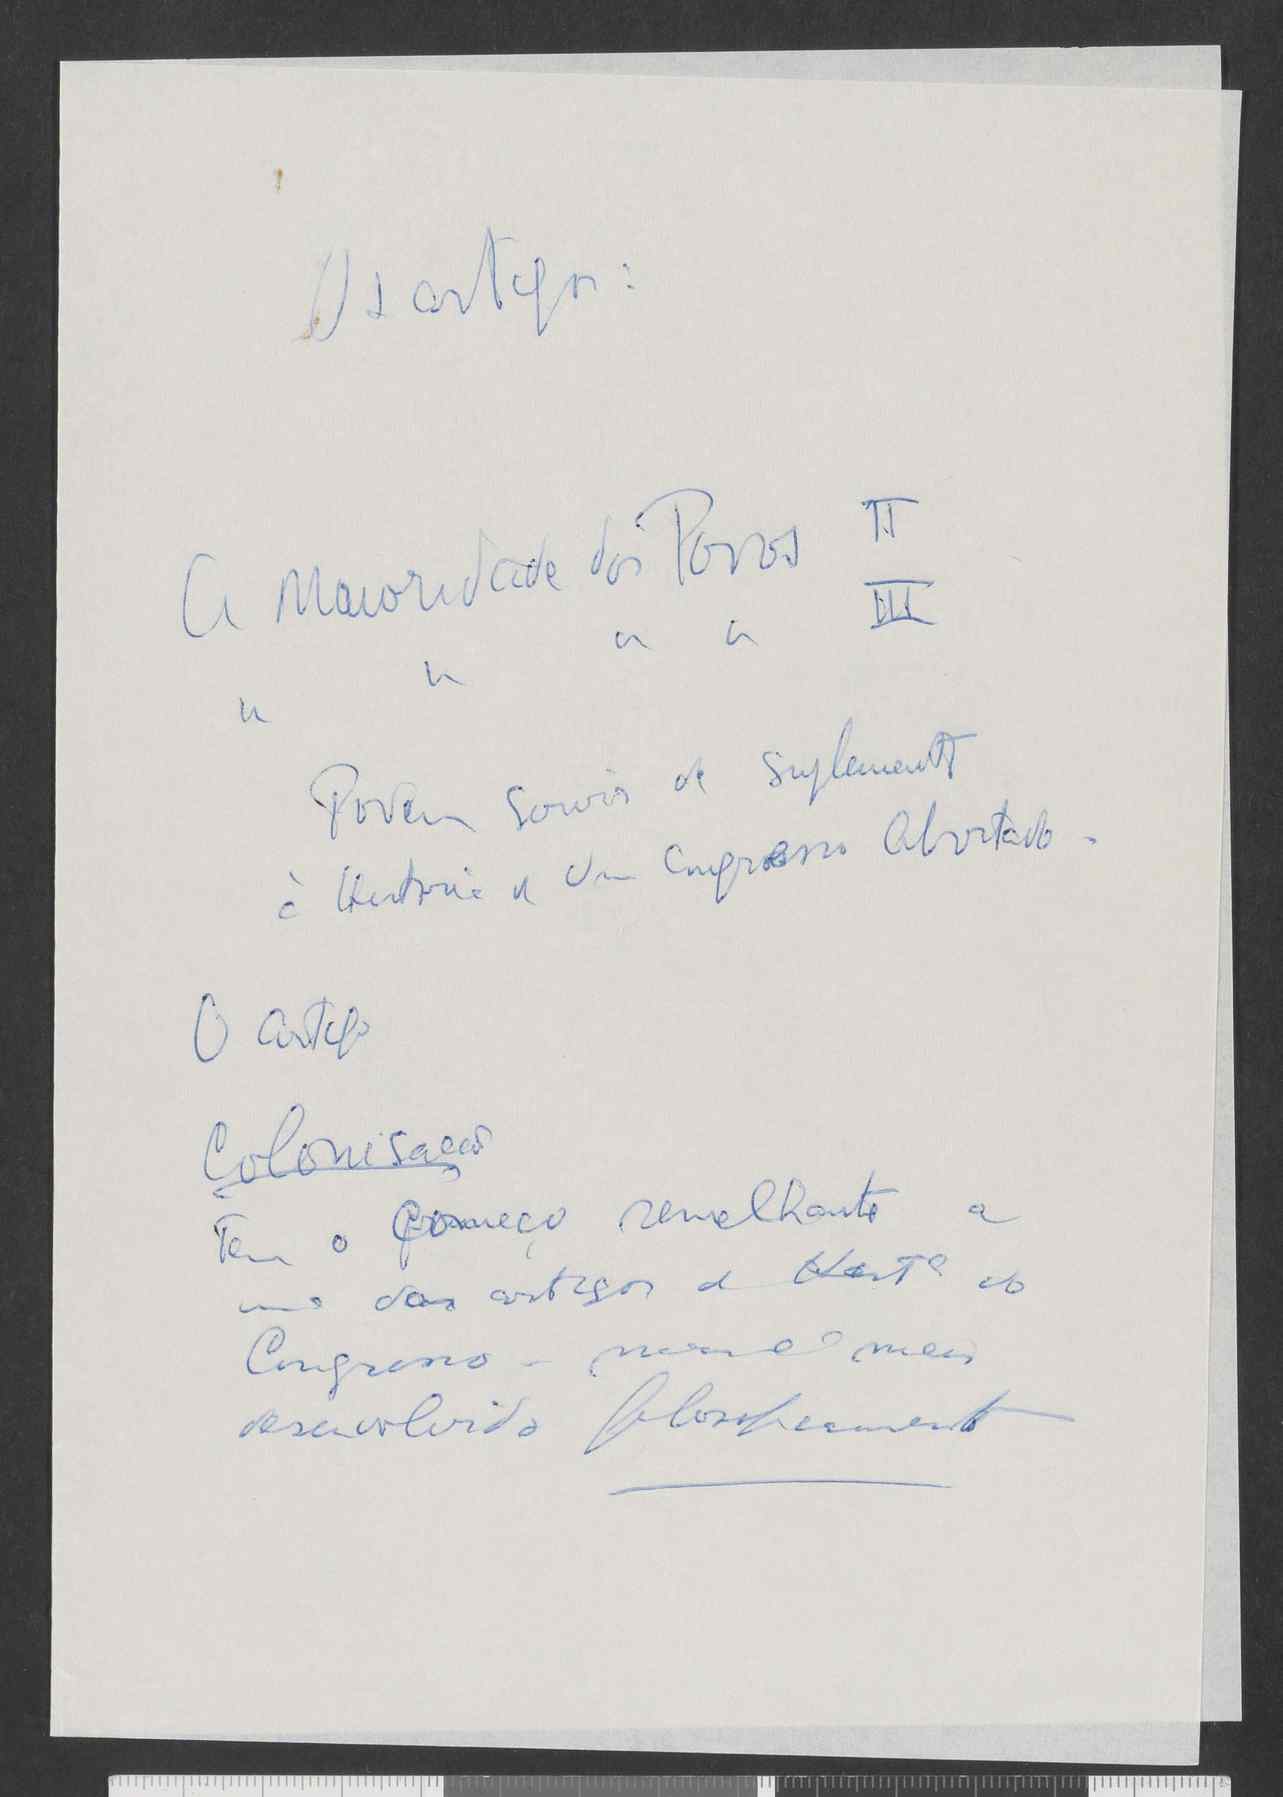 Os artigos:
A Maioridade dos Povos II
" " " " III
Podem servir de suplemento
à História de Um Congresso Abortado -
O artigo
Colonisação
Tem o começo semelhante a
um dos artigos da Histª do
Congresso - mas é mais
desenvolvido filosoficamente